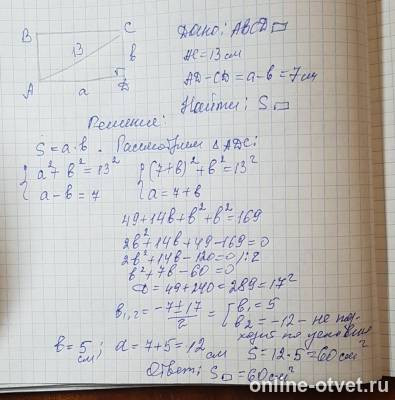 B C Дано: ABCD▭
13 в AC = 13 см
A a D AD - CD = a - в = 7 см
Найти: S▭
Решение:
S = a·в. Рассмотрим △ADC:
{a² + в² = 13² {(7+в)² + в² = 13²
a - в = 7 a = 7 + в
49 + 14в + в² + в² = 169
2в² + 14в + 49 - 169 = 0
2в² + 14в - 120 = 0 /:2
в² + 7в - 60 = 0
D = 49 + 240 = 289 = 17²
в₁,₂ = (-7 ± 17)/2 = {в₁ = 5
в₂ = -12 - не под-
ходит по условию
в = 5 см; a = 7 + 5 = 12 см S = 12·5 = 60 см²
Ответ: S▭ = 60 см²
online-otvet.ru